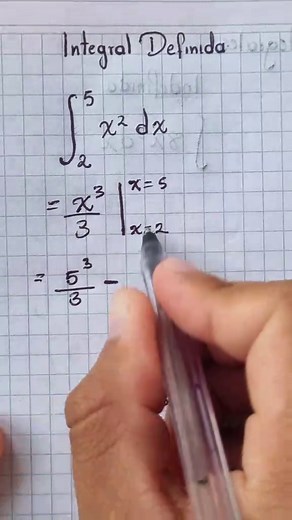 Integral Definida
∫₂⁵ x² dx
= x³/3 | x=5 x=2
= 5³/3 -